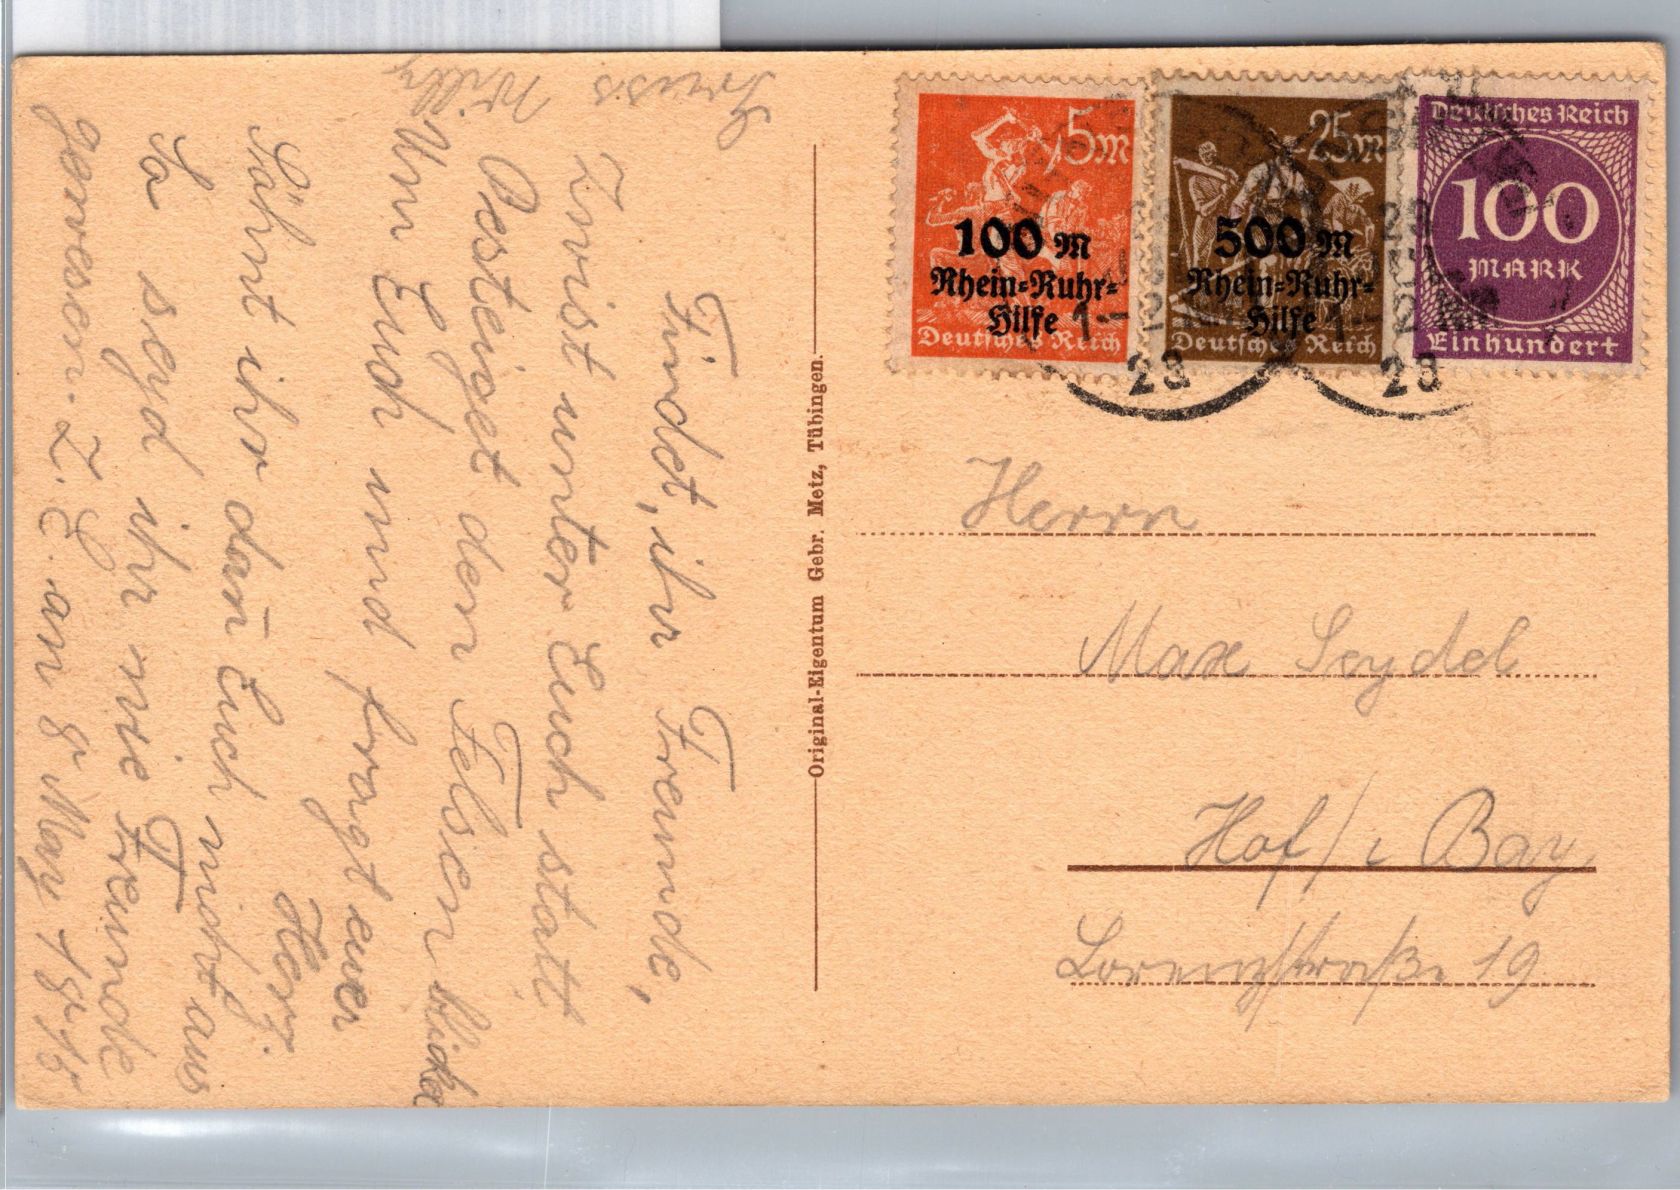 Findet, ihr Freunde,
Zwist unter Euch statt
Besteiget den Felsen
blickt
Um Euch und fragt euer
Herz.
Söhnt ihr dan̄ Euch nicht aus
So seyd ihr nie Freunde
gewesen. Z. E. am 8 May 1815
Gruss
Willy
Original-Eigentum Gebr. Metz, Tübingen.
5M
100 M
Rhein-Ruhr-
Hilfe
Deutsches Reich
25M
500 M
Rhein-Ruhr-
Hilfe
Deutsches Reich
Deutsches Reich
100
MARK
Einhundert
1–2
23
1–2
23
Herrn
Max Seydel
Hof / i Bay.
Lorenzstraße 19